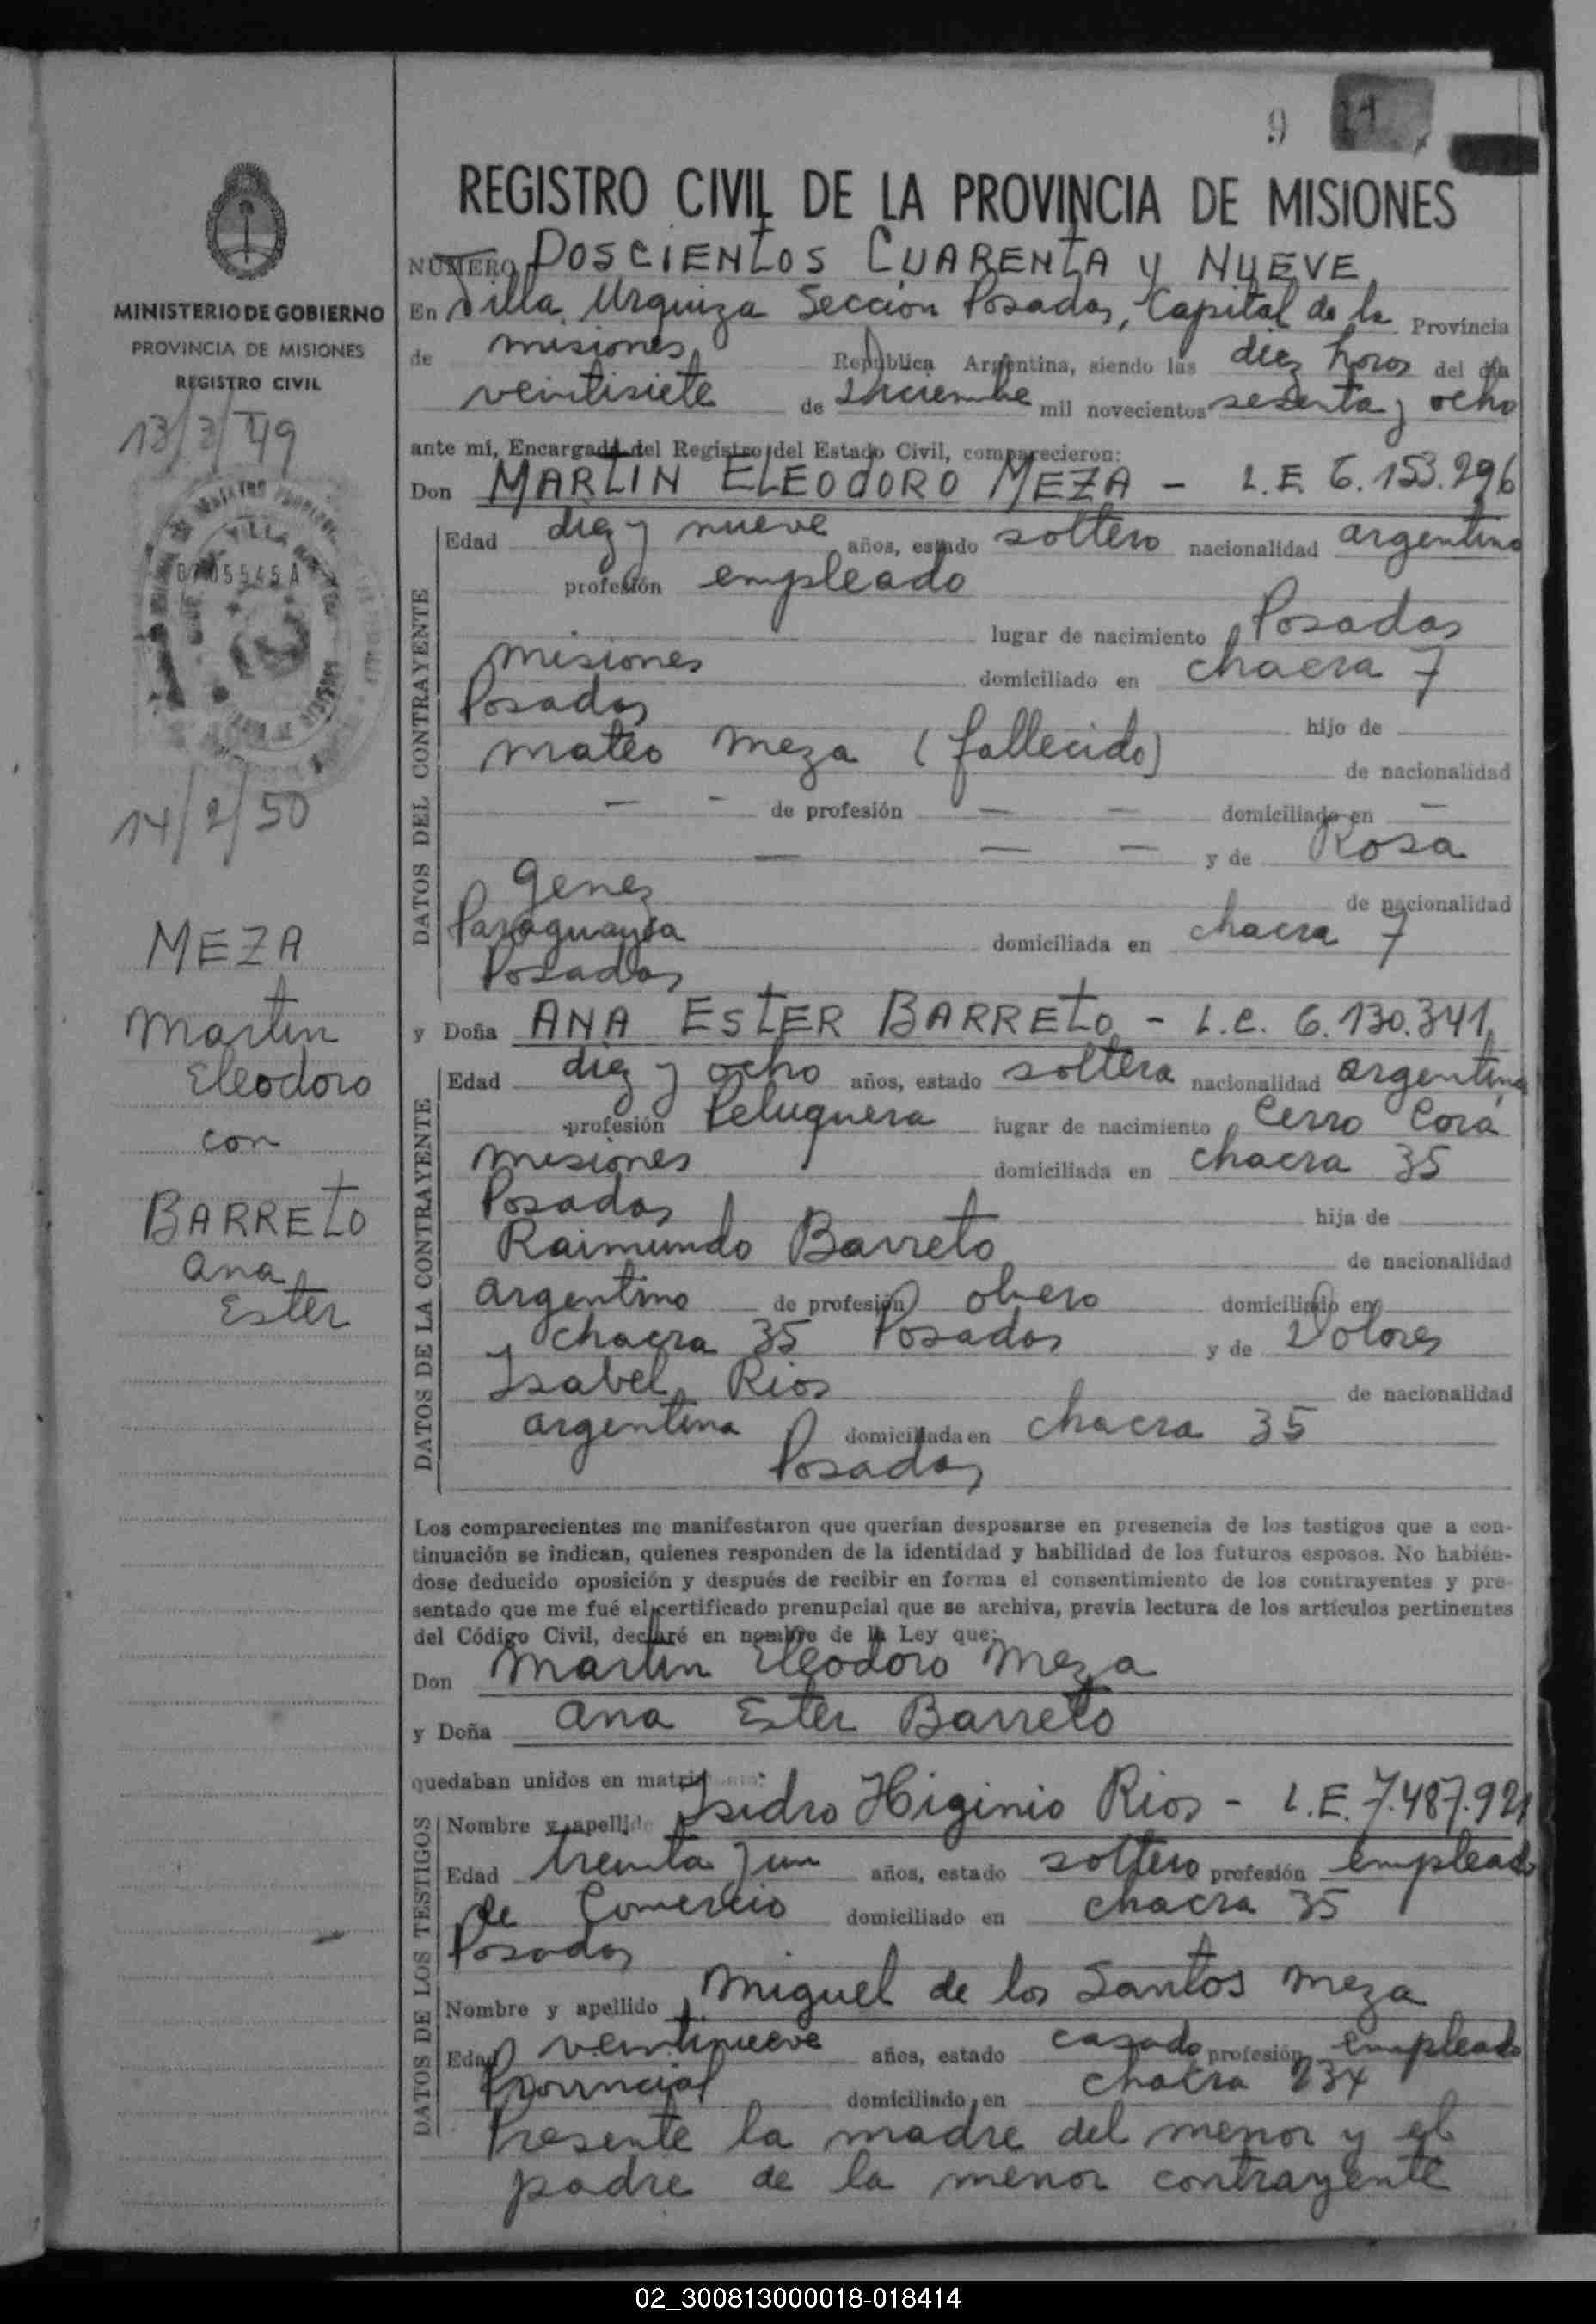 9
REGISTRO CIVIL DE LA PROVINCIA DE MISIONES
NÚMERO DOSCIENTOS CUARENTA Y NUEVE
En Villa Urquiza Sección Posadas, Capital de la Provincia
de misiones República Argentina, siendo las diez horas del día
veintisiete de Diciembre mil novecientos sesenta y ocho
ante mí, Encargado del Registro del Estado Civil, comparecieron:
Don MARTIN ELEODORO MEZA - L.E. 6.153.296
DATOS DEL CONTRAYENTE
Edad diez y nueve años, estado soltero nacionalidad argentino
profesión empleado
lugar de nacimiento Posadas
misiones domiciliado en chacra 7
Posadas hijo de
mateo meza (fallecido) de nacionalidad
— — de profesión — — domiciliado en —
— — — y de Rosa
Genez de nacionalidad
Paraguaya domiciliada en chacra 7
Posadas
y Doña ANA ESTER BARRETO - L.C. 6.130.341
DATOS DE LA CONTRAYENTE
Edad diez y ocho años, estado soltera nacionalidad argentina
profesión Peluquera lugar de nacimiento Cerro Corá
misiones domiciliada en chacra 35
Posadas hija de
Raimundo Barreto de nacionalidad
argentino de profesión obrero domiciliado en
chacra 35 Posadas y de Dolores
Isabel Rios de nacionalidad
argentina domiciliada en chacra 35
Posadas
Los comparecientes me manifestaron que querían desposarse en presencia de los testigos que a con-
tinuación se indican, quienes responden de la identidad y habilidad de los futuros esposos. No habién-
dose deducido oposición y después de recibir en forma el consentimiento de los contrayentes y pre-
sentado que me fué el certificado prenupcial que se archiva, previa lectura de los artículos pertinentes
del Código Civil, declaré en nombre de la Ley que:
Don Martin Eleodoro Meza
y Doña Ana Ester Barreto
quedaban unidos en
DATOS DE LOS TESTIGOS
Nombre y apellido Isidro Higinio Rios - L.E. 7.487.921
Edad treinta y un años, estado soltero profesión empleado
de Comercio domiciliado en chacra 35
Posadas
Nombre y apellido Miguel de los Santos Meza
Edad veintinueve años, estado casado profesión empleado
Provincial domiciliado en chacra 234
Presente la madre del menor y el
padre de la menor contrayente
MINISTERIO DE GOBIERNO
PROVINCIA DE MISIONES
REGISTRO CIVIL
13/3/49
14/2/50
MEZA
Martin
Eleodoro
con
BARRETO
Ana
Ester
02_300813000018-018414